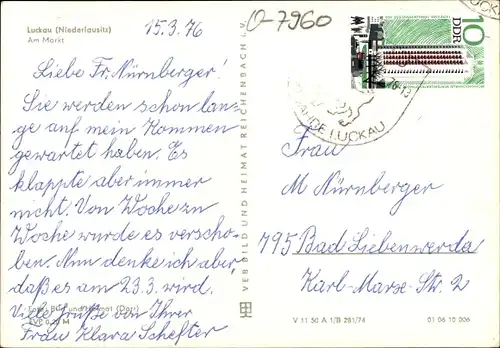 Luckau (Niederlausitz)
Am Markt
15.3.76
O-7960
Liebe Fr. Nürnberger!
Sie werden schon lan-
ge auf mein Kommen
gewartet haben. Es
klappte aber immer
nicht. Von Woche zu
Woche wurde es verscho-
ben. Nun denke ich aber,
daß es am 23.3. wird.
Viele Grüße von Ihrer
Frau Klara Schefter
Foto: Bild und Heimat (Darr)
EVP 0,20 M
VEB BILD UND HEIMAT REICHENBACH I. V.
10
DDR
LUCKAU
JAHRE LUCKAU
Frau
M Nürnberger
795 Bad Liebenwerda
Karl-Marx-Str. 2
V 11 50 A 1/B 281/74
01 06 10 006